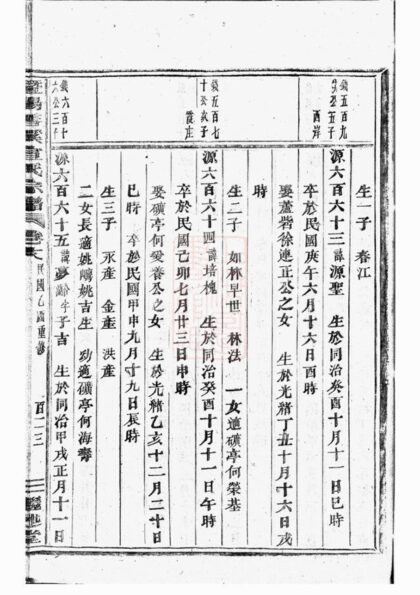 錢五百九
公五子
西洋
生一子 春江
源六百六十三諱源聖 生於同治癸酉十月十一日巳時
卒於民國庚午六月十六日酉時
娶蘆砦徐連正公之女 生於光緒丁丑十月十六日戌
時
錢五百七
十公次子
霞庄
生二子 如林早世 林法 一女適礦亭何榮基
源六百六十四諱培槐 生於同治癸酉十月十一日午時
卒於民國己卯七月廿三日申時
娶礦亭何愛養公之女 生於光緒乙亥十二月二十日
巳時 卒於民國甲申九月十九日辰時
生三子 永產 金產 洪產
二女長適姚鴻姚吉生 幼適礦亭何海壽
錢六百十
六公三子
源六百六十五諱夢齡字子吉 生於同治甲戌正月十一日
氏宗譜 卷 民國乙酉重修
百十三
堂